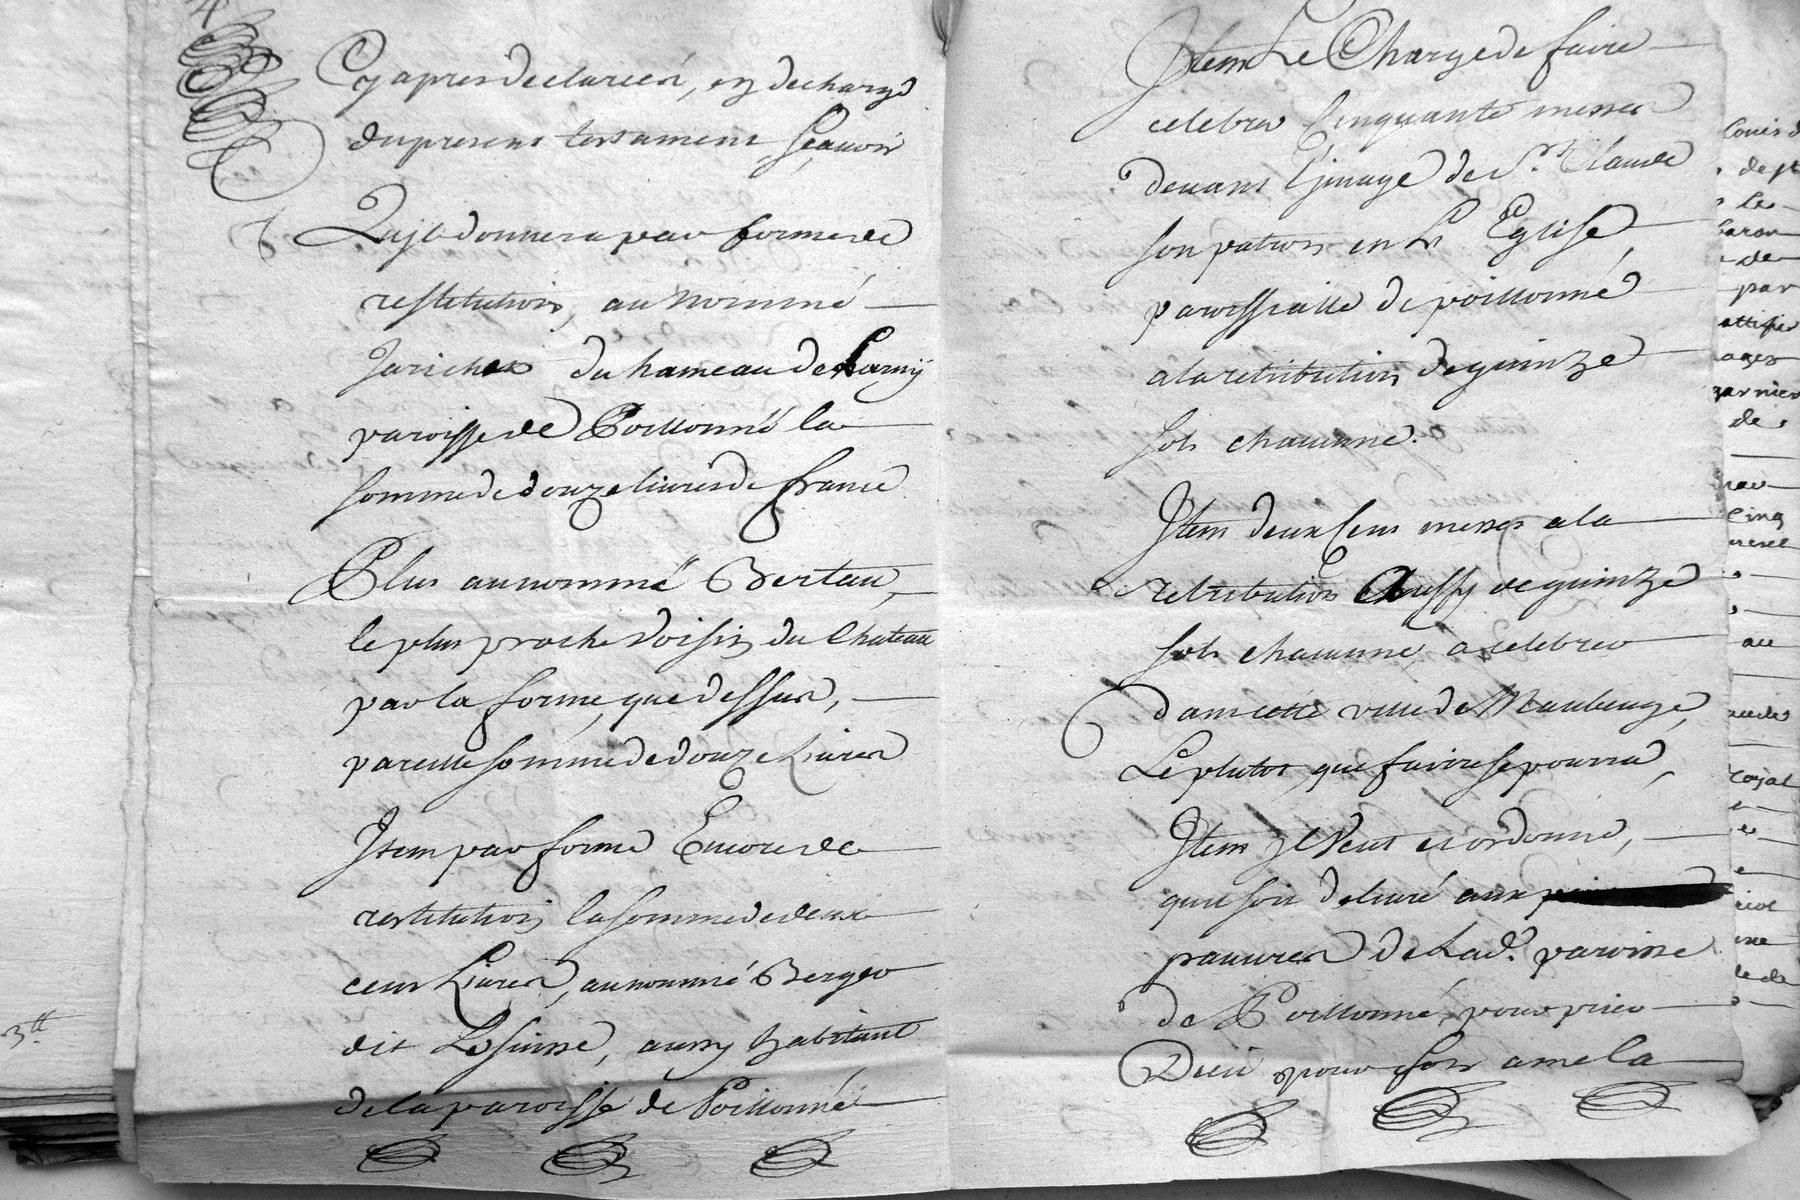 Cy apres declareés, en decharge
du present testament Scavoir
Qu'il donnera par forme de
restitution, au nommé
du hameau de Larmÿ
paroisse de Poillonné la
somme de douze livres de france
Plus au nommé Bertau,
le plus proche voisin du Chateau
par la forme que dessus,
pareille somme de douze Livres
Item par forme Encore de
restitution la somme de deux
cent Livres, au nommé Berger
dit Lesuisse, aussy habitant
de la paroisse de Poillonné
Item Le Charge de faire
celebrer Cinquante messes
devant L'jmage de St. Claude
son patron en L'Eglise,
paroissialle de poillonné
a la retribution de quinze
sols chacunne.
Item deux Cens messes a la
retribution Aussy de quinze
sols chacunne, a celebrer
dans cette ville de Maubeuge,
Le plutot que faire se pourra,
Item jl Veut et ordonne,
qu'il soit delivré aux
pauvres de Lad. paroisse
de Poillonné, pour prier
Dieu pour son ame la
3.tt
Louis d
le
de
par
ages
de
Cinq
au
royal